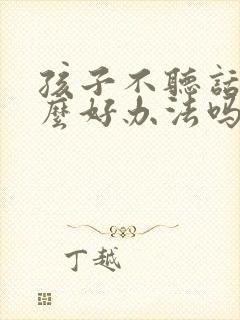 孩子不聽話
麼好办法吗
丁越